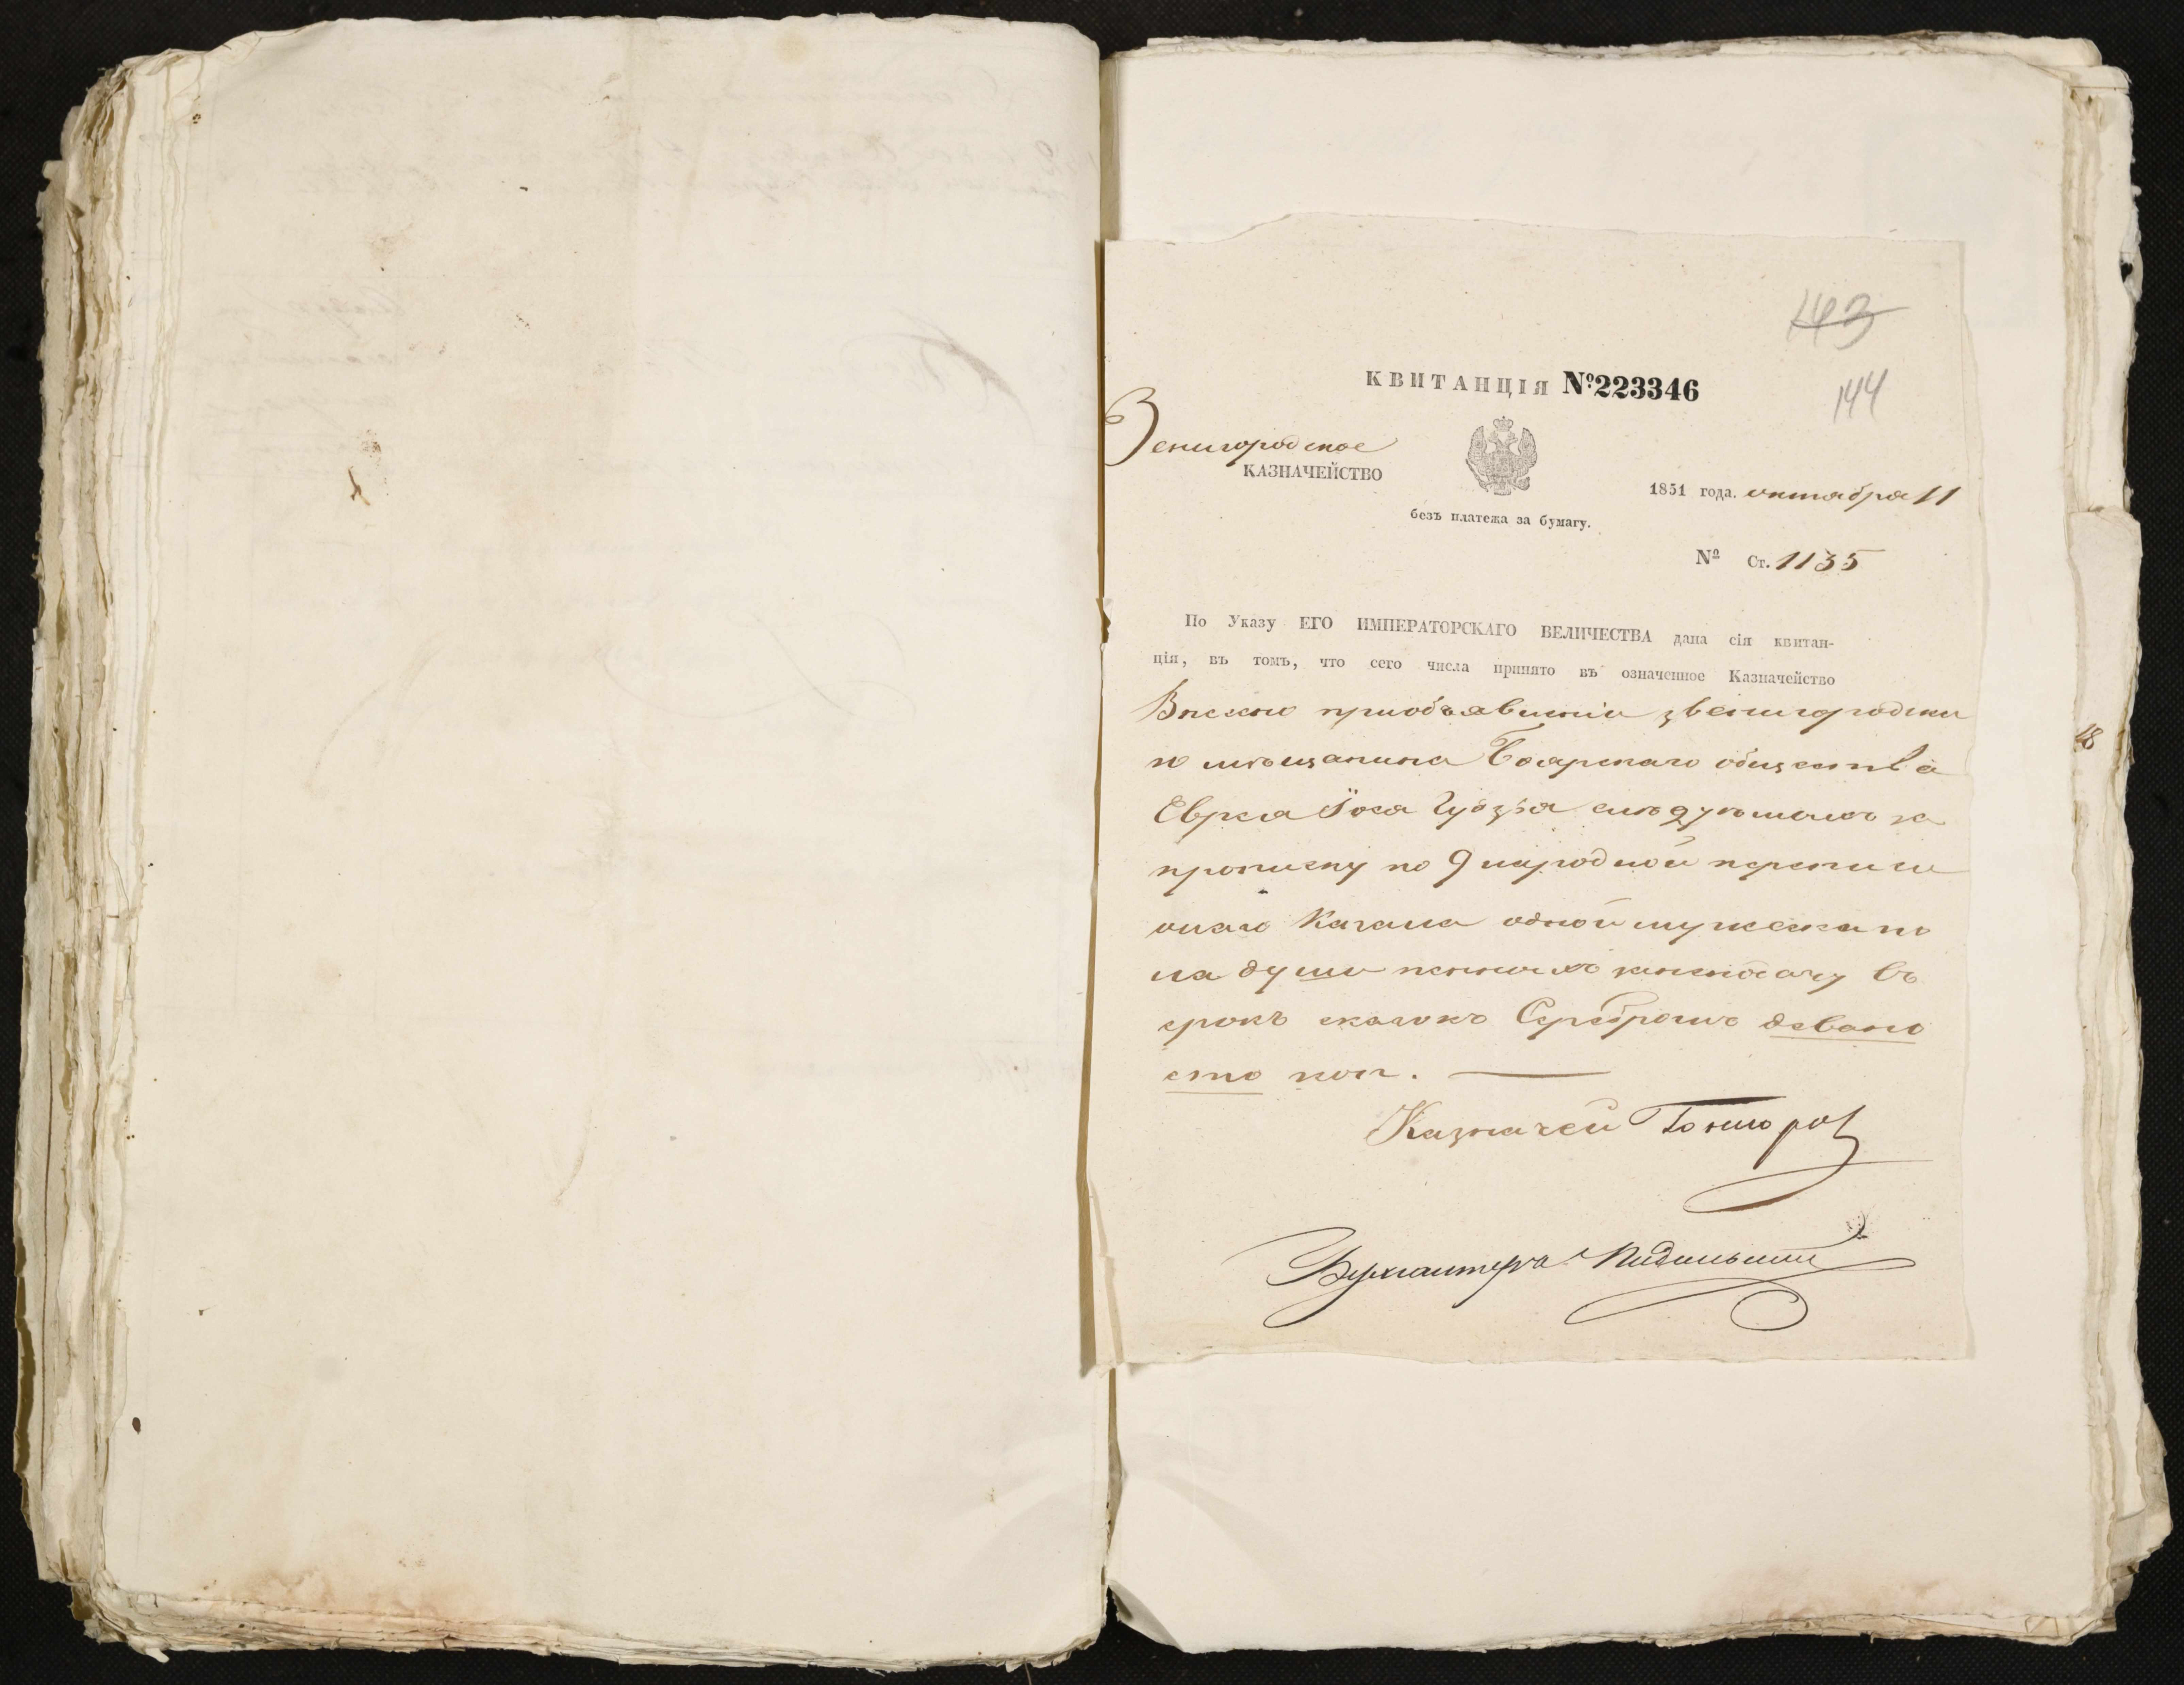 143
КВИТАНЦІЯ №223346
144
Звенигородское
КАЗНАЧЕЙСТВО
1851 года. октября 11
безъ платежа за бумагу.
№ Ст. 1135
По Указу ЕГО ИМПЕРАТОРСКАГО ВЕЛИЧЕСТВА дана сія квитан-
ція, въ томъ, что сего числа принято въ означенное Казначейство
приобъявленіи звенигородска
го мѣщанина Боярскаго общества
Еврея Іося слѣдуемыхъ за
прописку по 9 народной переписи
онаго Кагала одной мужеска по
ла души пенныхъ въ
срокъ сказокъ Серебромъ девяно
сто коп.
Казначей Гонторов
Бухгалтеръ
18